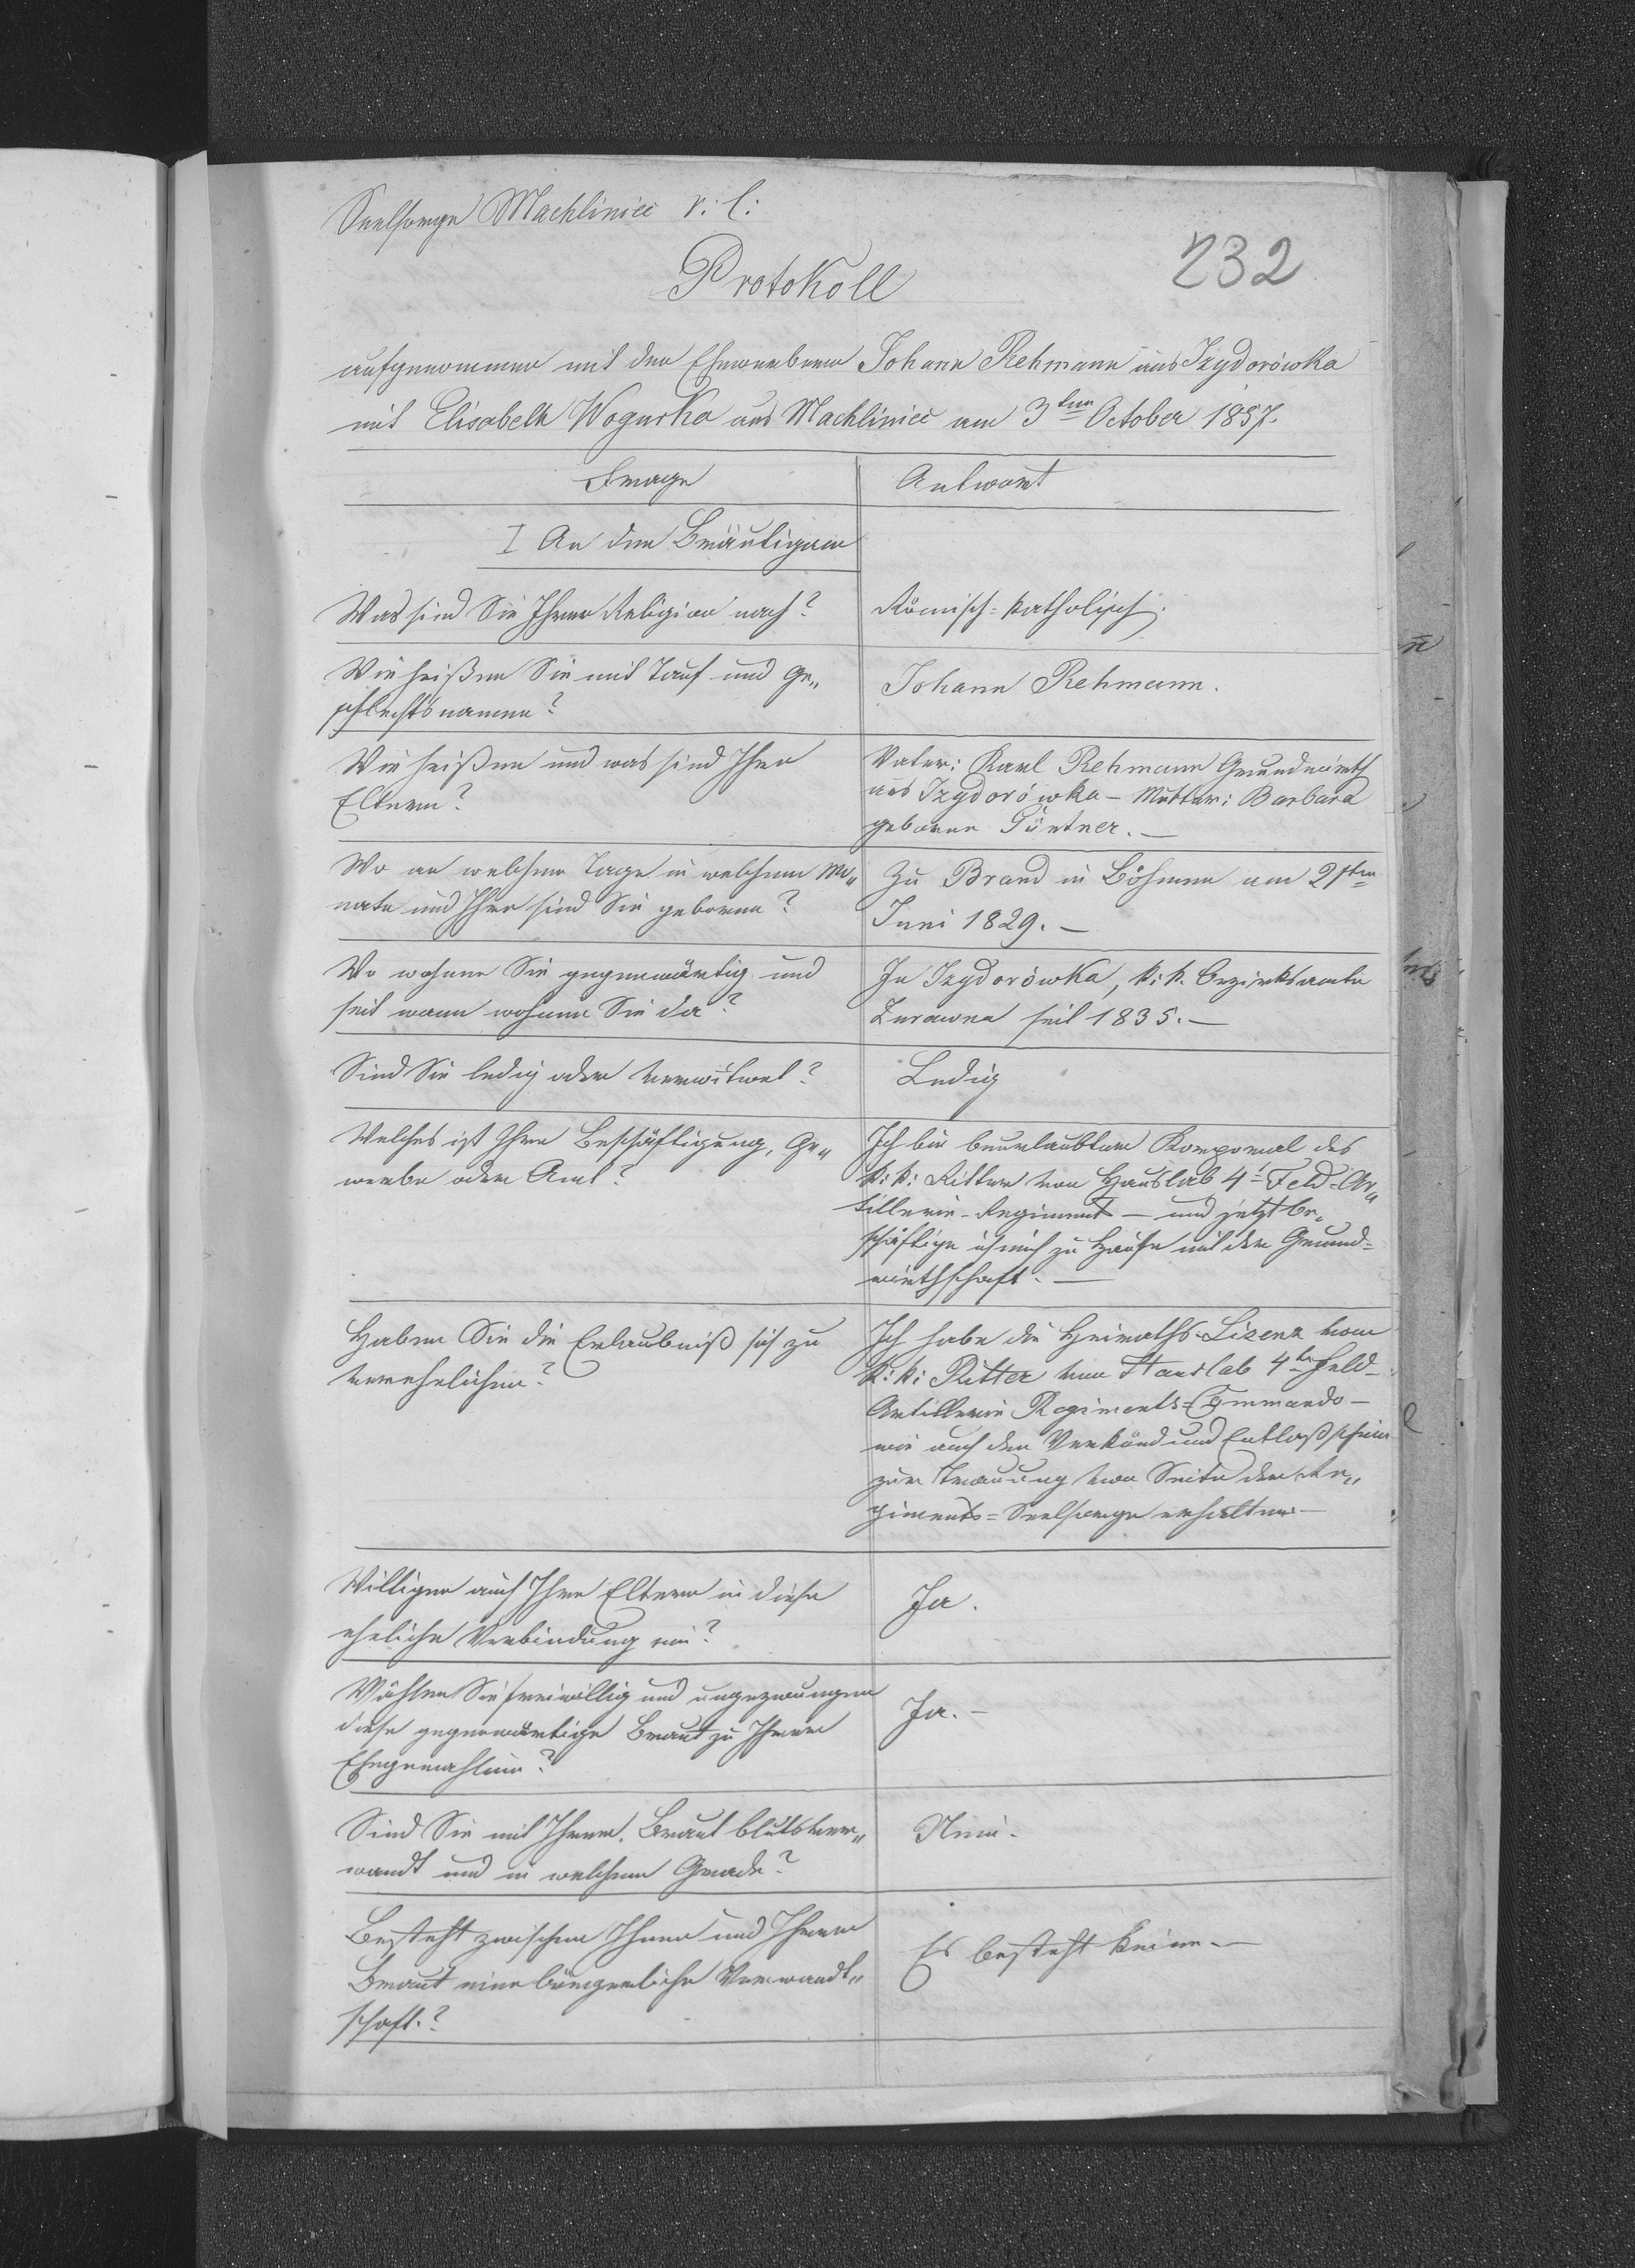 Seelsorge Machliniec r: l:
232
Protokoll
aufgenommen mit den Ehewerbern Johann Rehmann aus Izydorówka
mit Elisabeth Wogurka aus Machliniec am 3ten October 1857.
Frage
Antwort
I An den Bräutigam
Was sind Sie Ihrer Religion nach?
Römisch-katholisch.
Wie heißen Sie mit Tauf und Ge„
schlechtsnamen?
Johann Rehmann.
Wie heißen und was sind Ihre
Eltern?
Vater: Karl Rehmann Grundwirth
aus Izydorówka – Mutter: Barbara
geborene Güntner. –
Wo an welchem Tage in welchem Mo„
nate und Jahre sind Sie geboren?
Zu Brand in Böhmen am 21ten
Juni 1829. –
Wo wohnen Sie gegenwärtig und
seit wann wohnen Sie da?
In Izydorówka, k: k. Bezirksamte
Zurawna seit 1835. –
Sind Sie ledig oder verwitwet?
Ledig
Welches ist Ihre Beschäftigung, Ge„
werbe oder Amt?
Ich bin beurlaubter Korporal des
k: k: Ritter von Hauslab 4t Feld-Ar„
tillerie-Regiment – und jetzt be„
schäftige ich mich zu Hause mit der Grund=
wirthschaft. –
Haben Sie die Erlaubniß sich zu
verehelichen?
Ich habe die Heiraths-Lizenz vom
k: k: Ritter von Hauslab 4ten Feld-
Artillerie Regiments-Commando –
wie auch den Verkünd und Entlaßschein
zur Trauung von Seite der Re„
giments=Seelsorge erhalten –
Willigen auch Ihre Eltern in diese
eheliche Verbindung ein?
Ja.
Wählen Sie freiwillig und ungezwungen
diese gegenwärtige Braut zu Ihrer
Ehegemahlin?
Ja. –
Sind Sie mit Ihrer Braut blutsver„
wandt und in welchem Grade?
Nein.
Besteht zwischen Ihnen und Ihrer
Braut eine bürgerliche Verwandt„
schaft?
Es besteht keine. –